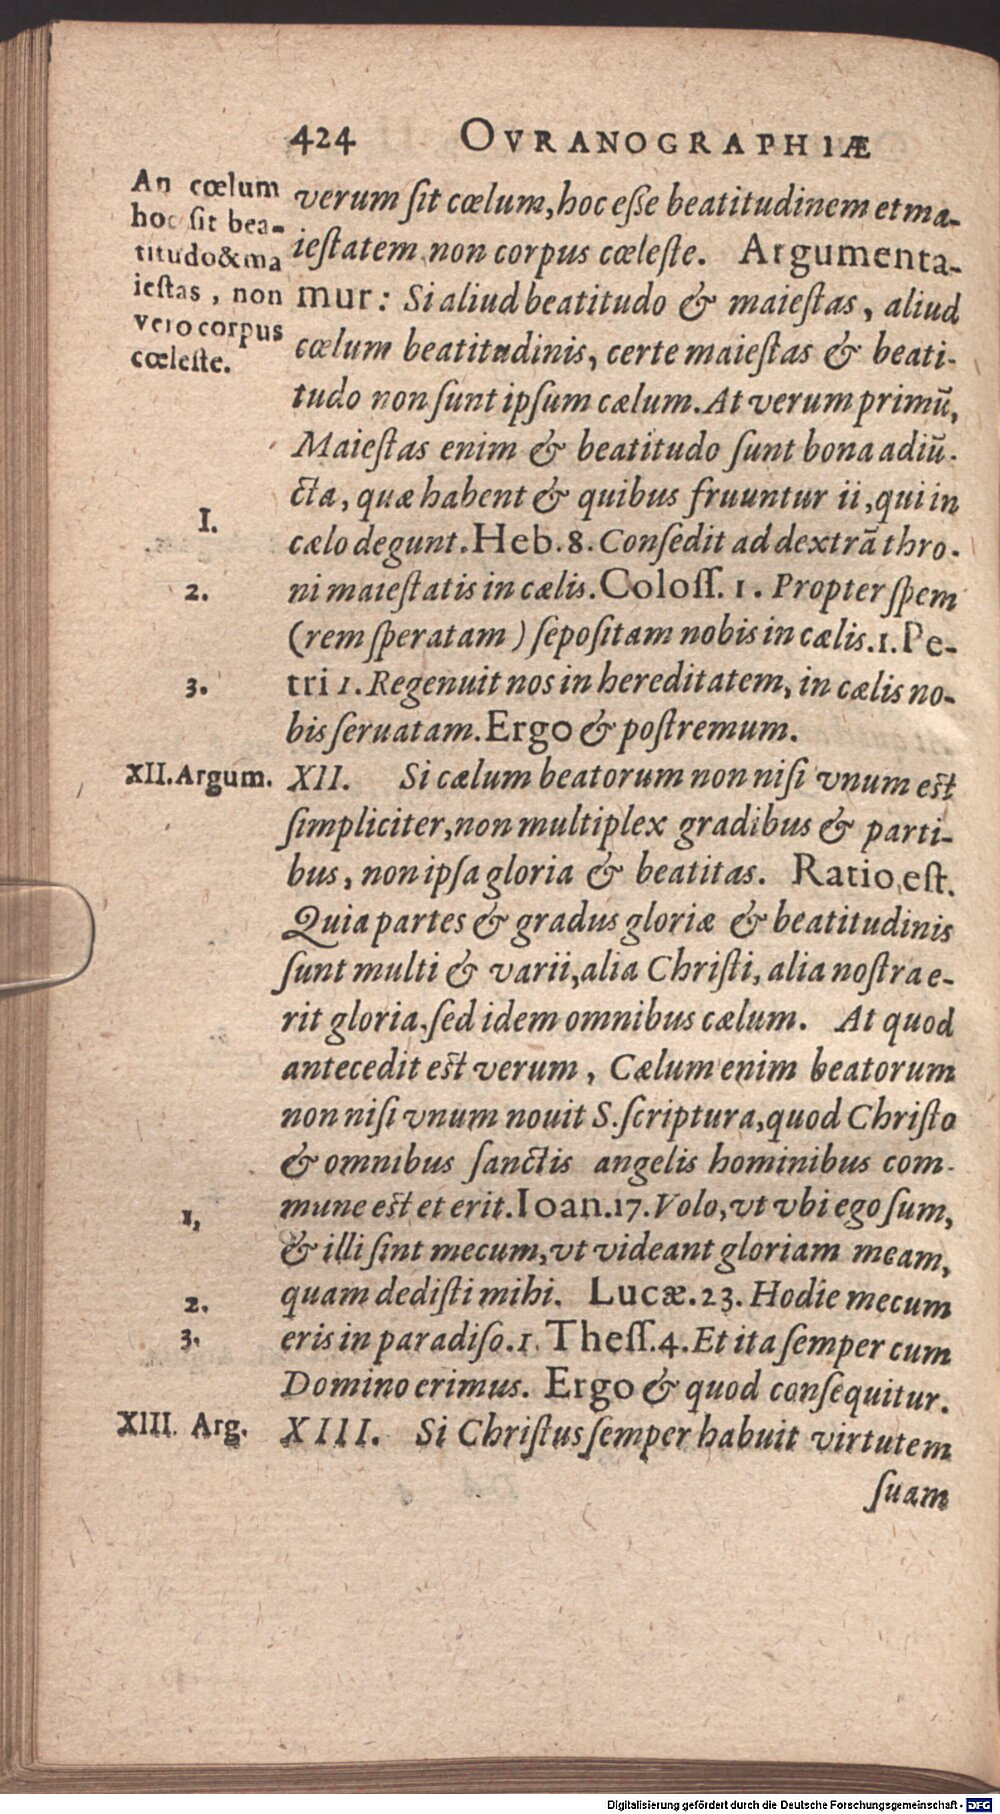 424 OVRANOGRAPHIÆ
An cœlum
hoc ſit bea-
titudo&ma
ieſtas, non
vero corpus
cœleſte.
verum ſit cœlum, hoc eſſe beatitudinem et ma-
ieſtatem non corpus cœleſte. Argumenta-
mur: Si aliud beatitudo & maieſtas, aliud
cœlum beatitudinis, certe maieſtas & beati-
tudo non ſunt ipſum cælum. At verum primũ,
Maieſtas enim & beatitudo ſunt bona adiũ-
cta, quæ habent & quibus fruuntur ii, qui in
I.
cælo degunt. Heb. 8. Conſedit ad dextrã thro-
2.
ni maieſtatis in cælis. Coloſſ. 1. Propter ſpem
(rem ſperatam) ſepoſitam nobis in cælis. 1. Pe-
3.
tri 1. Regenuit nos in hereditatem, in cælis no-
bis ſeruatam. Ergo & poſtremum.
XII. Argum.
XII. Si cælum beatorum non niſi vnum eſt
ſimpliciter, non multiplex gradibus & parti-
bus, non ipſa gloria & beatitas. Ratio eſt.
Quia partes & gradus gloriæ & beatitudinis
ſunt multi & varii, alia Chriſti, alia noſtra e-
rit gloria, ſed idem omnibus cælum. At quod
antecedit eſt verum, Cælum enim beatorum
non niſi vnum nouit S. ſcriptura, quod Chriſto
& omnibus ſanctis angelis hominibus com-
1,
mune eſt et erit. Ioan. 17. Volo, vt vbi ego ſum,
& illi ſint mecum, vt videant gloriam meam,
2.
quam dediſti mihi. Lucæ. 23. Hodie mecum
3.
eris in paradiſo. 1. Theſſ. 4. Et ita ſemper cum
Domino erimus. Ergo & quod conſequitur.
XIII. Arg.
XIII. Si Chriſtus ſemper habuit virtutem
ſuam
Digitalisierung gefördert durch die Deutsche Forschungsgemeinschaft - DFG